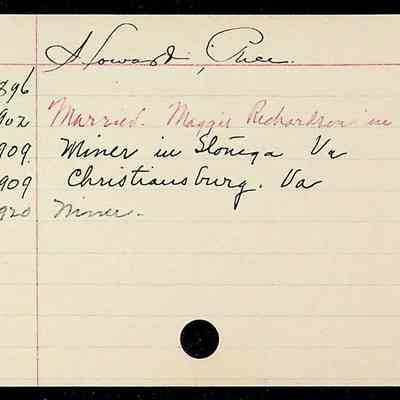 Howard, Price.
896
902 Married. Maggie Richardson in
909. Miner in Stonega Va
909 Christiansburg. Va
920 Miner.